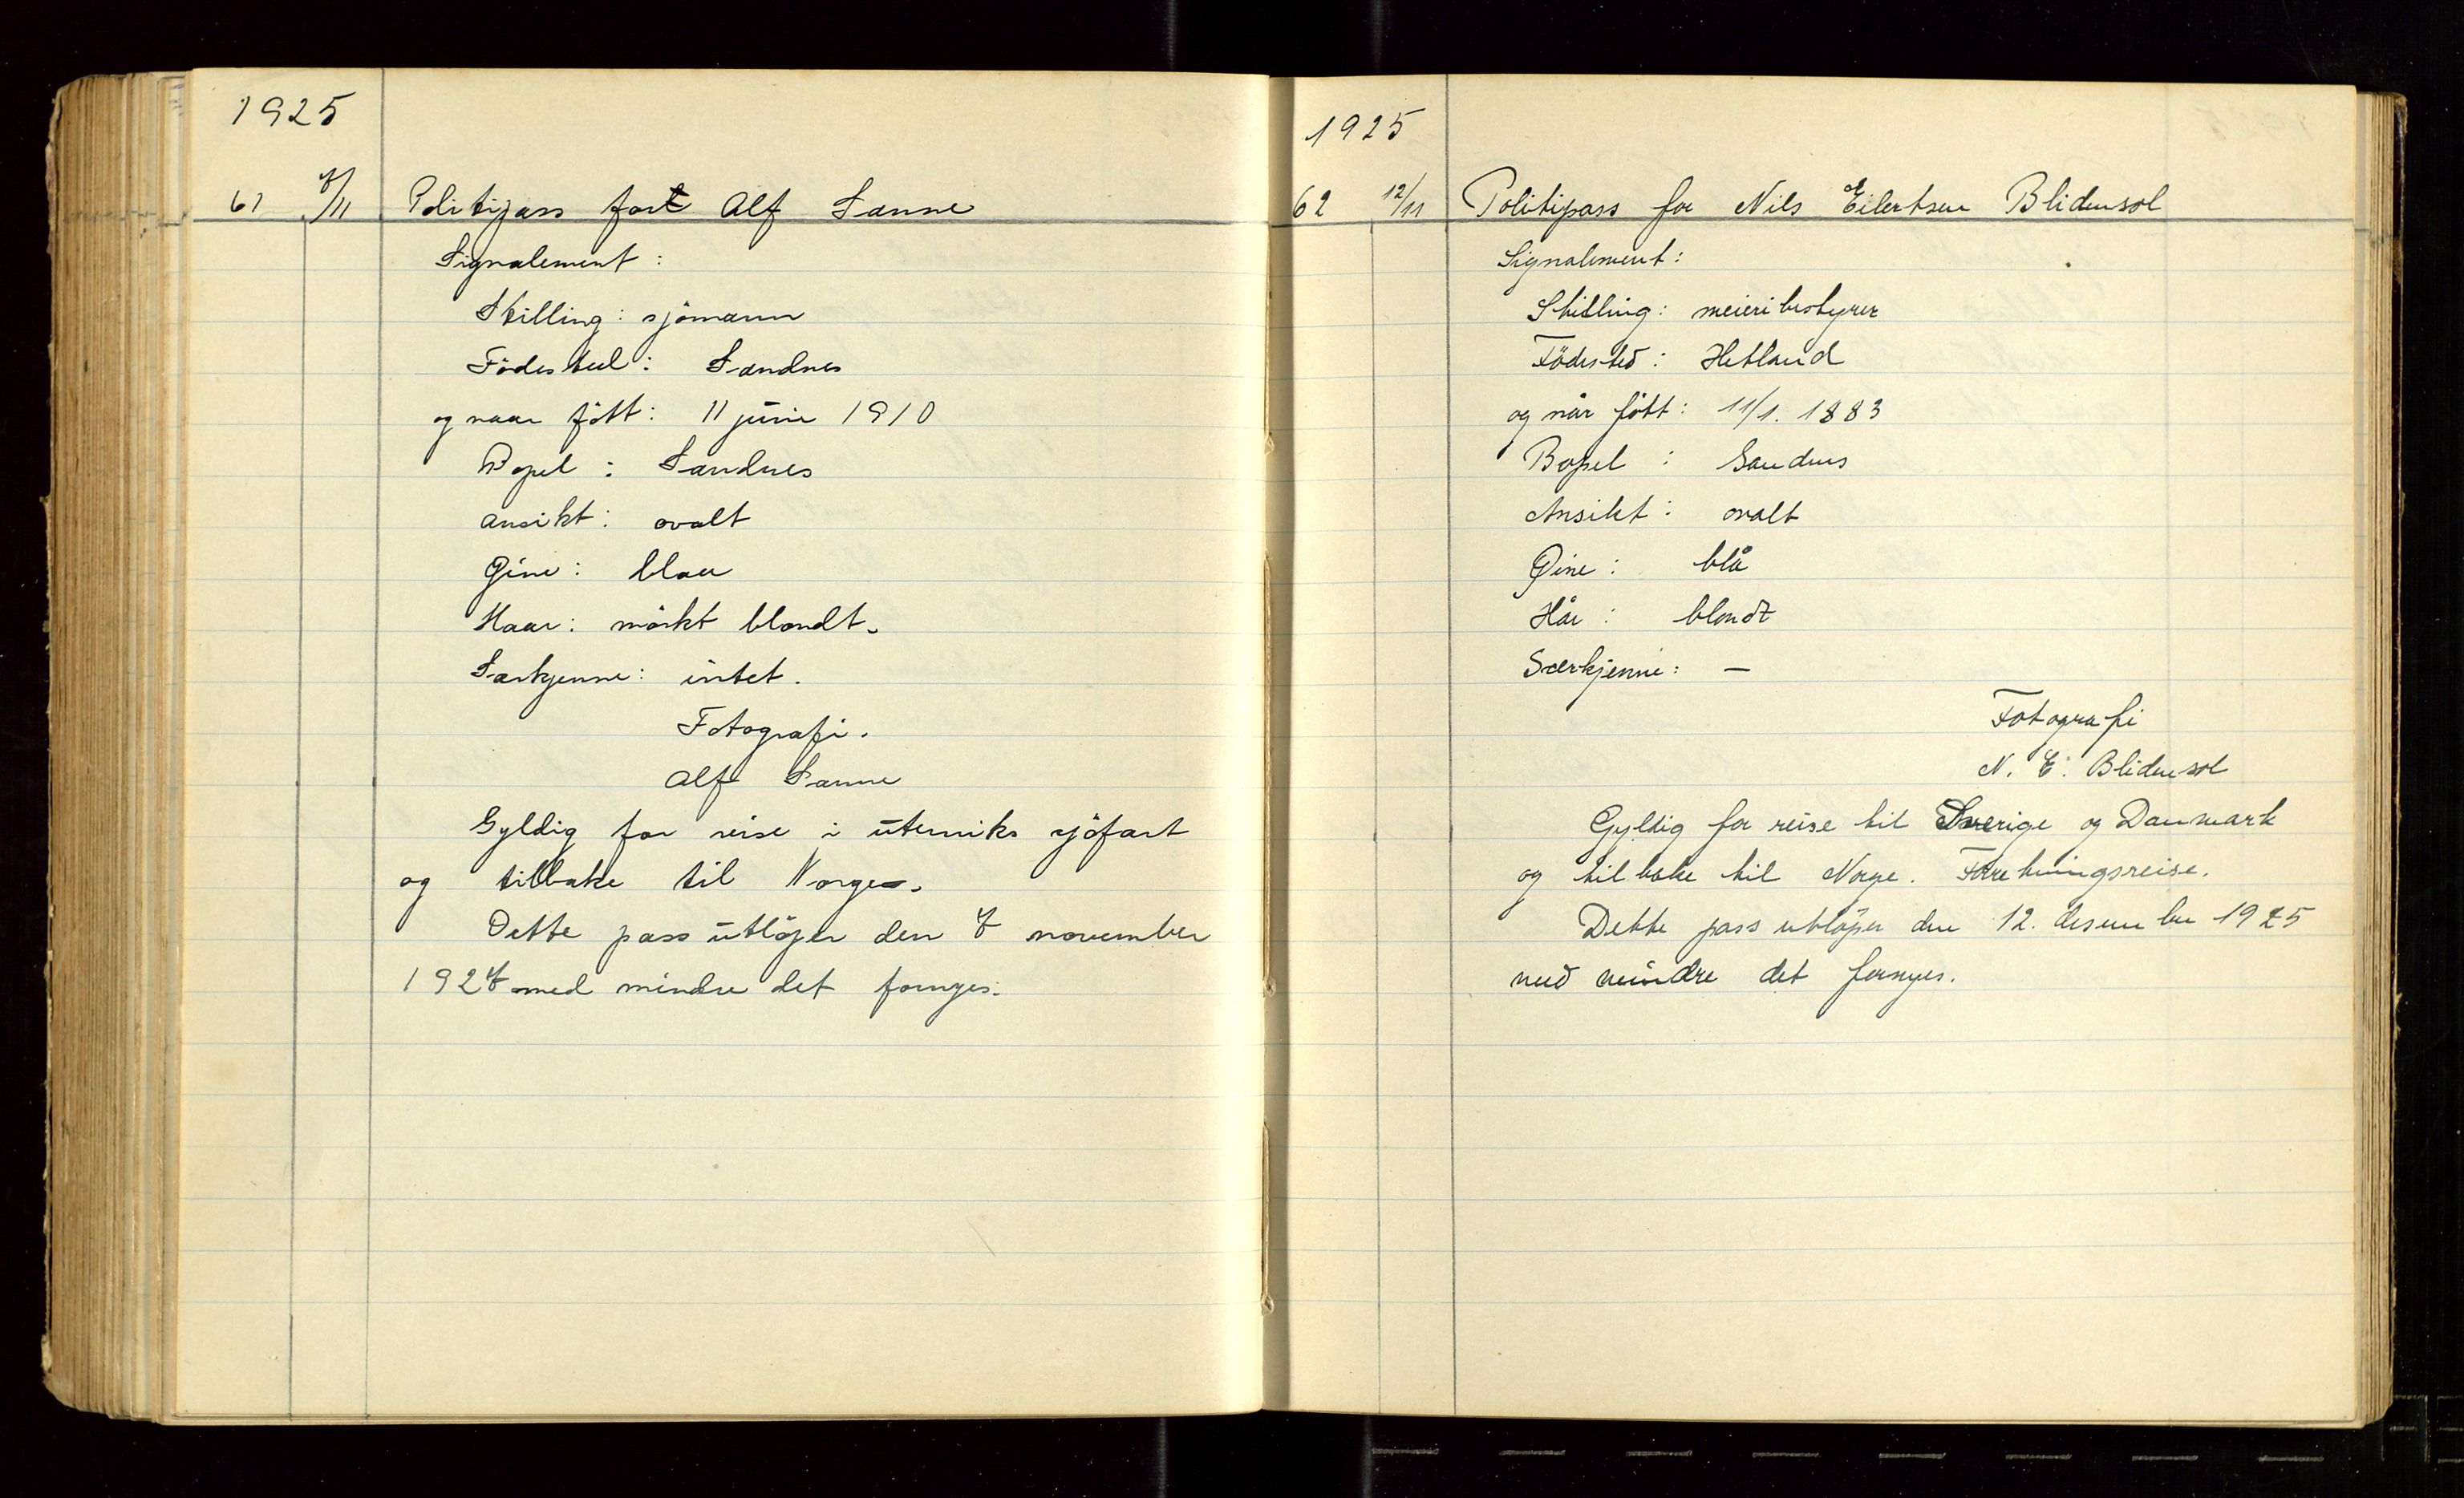 1925
61 7/11 Politipass for Alf Sanne
Signalement:
Stilling: sjömann
Födested: Sandnes
og naar fött: 11 juni 1910
Bopel: Sandnes
Ansikt: ovalt
Øine: blaa
Haar: mörkt blondt.
Særkjenne: intet.
Fotografi.
Alf Sanne
Gyldig for reise i utenriks sjöfart
og tilbake til Norge.
Dette pass utlöper den 7 november
1927 med mindre det fornyes.
1925
62 12/11 Politipass for Nils Eilertsen Blidensol
Signalement:
Stilling: meieribestyrer
Födested: Hetland
og når fött: 11/1. 1883
Bopel: Sandnes
Ansikt: ovalt
Øine: blå
Hår: blondt
Særkjenne: —
Fotografi
N. E. Blidensol
Gyldig for reise til Sverige og Danmark
og tilbake til Norge. Forretningsreise.
Dette pass utlöper den 12. desember 1925
med mindre det fornyes.